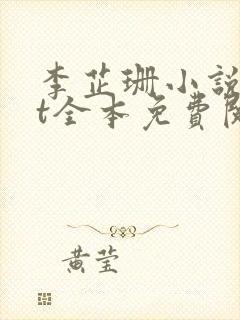 李芷珊小說
t全本免費
黃莹